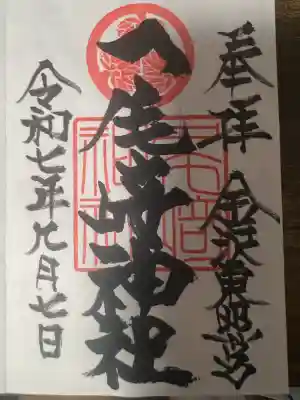 奉拝 金沢東照宮
尾崎神社
令和七年九月七日